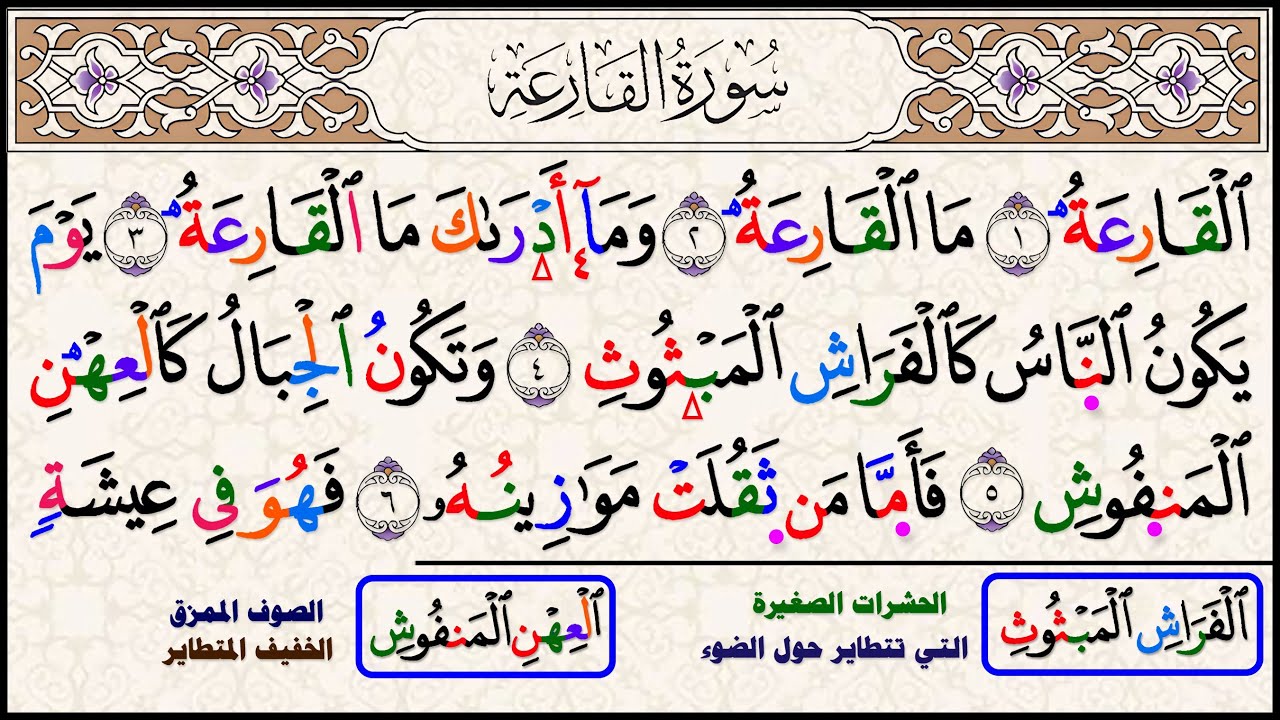 سُورَةُ القَارِعَةِ
ٱلْقَارِعَةُ ١ مَا ٱلْقَارِعَةُ ٢ وَمَآ أَدْرَىٰكَ مَا ٱلْقَارِعَةُ ٣ يَوْمَ
يَكُونُ ٱلنَّاسُ كَٱلْفَرَاشِ ٱلْمَبْثُوثِ ٤ وَتَكُونُ ٱلْجِبَالُ كَٱلْعِهْنِ
ٱلْمَنفُوشِ ٥ فَأَمَّا مَن ثَقُلَتْ مَوَٰزِينُهُۥ ٦ فَهُوَ فِى عِيشَةٍ
ٱلْفَرَاشِ ٱلْمَبْثُوثِ
الحشرات الصغيرة
التي تتطاير حول الضوء
ٱلْعِهْنِ ٱلْمَنفُوشِ
الصوف الممزق
الخفيف المتطاير